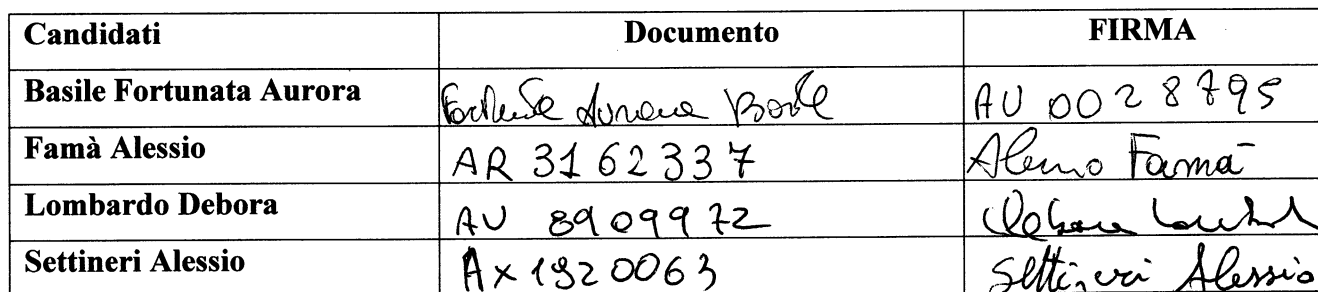 Candidati Documento FIRMA
Basile Fortunata Aurora Fortunata Aurora Basile AU 0028795
Famà Alessio AR 3162337 Alessio Famà
Lombardo Debora AU 8909972 Debora Lombardo
Settineri Alessio AX 1920063 Settineri Alessio